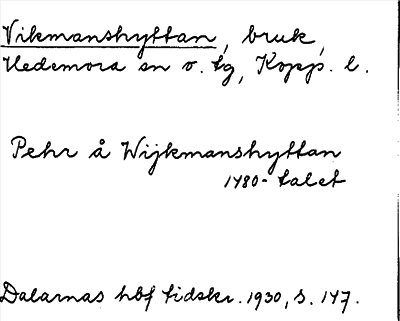 Vikmanshyttan, bruk,
Hedemora sn o. tg, Kopp. l.
Pehr å Wijkmanshyttan
1480-talet
Dalarnas hbf tidskr. 1930, s. 147.